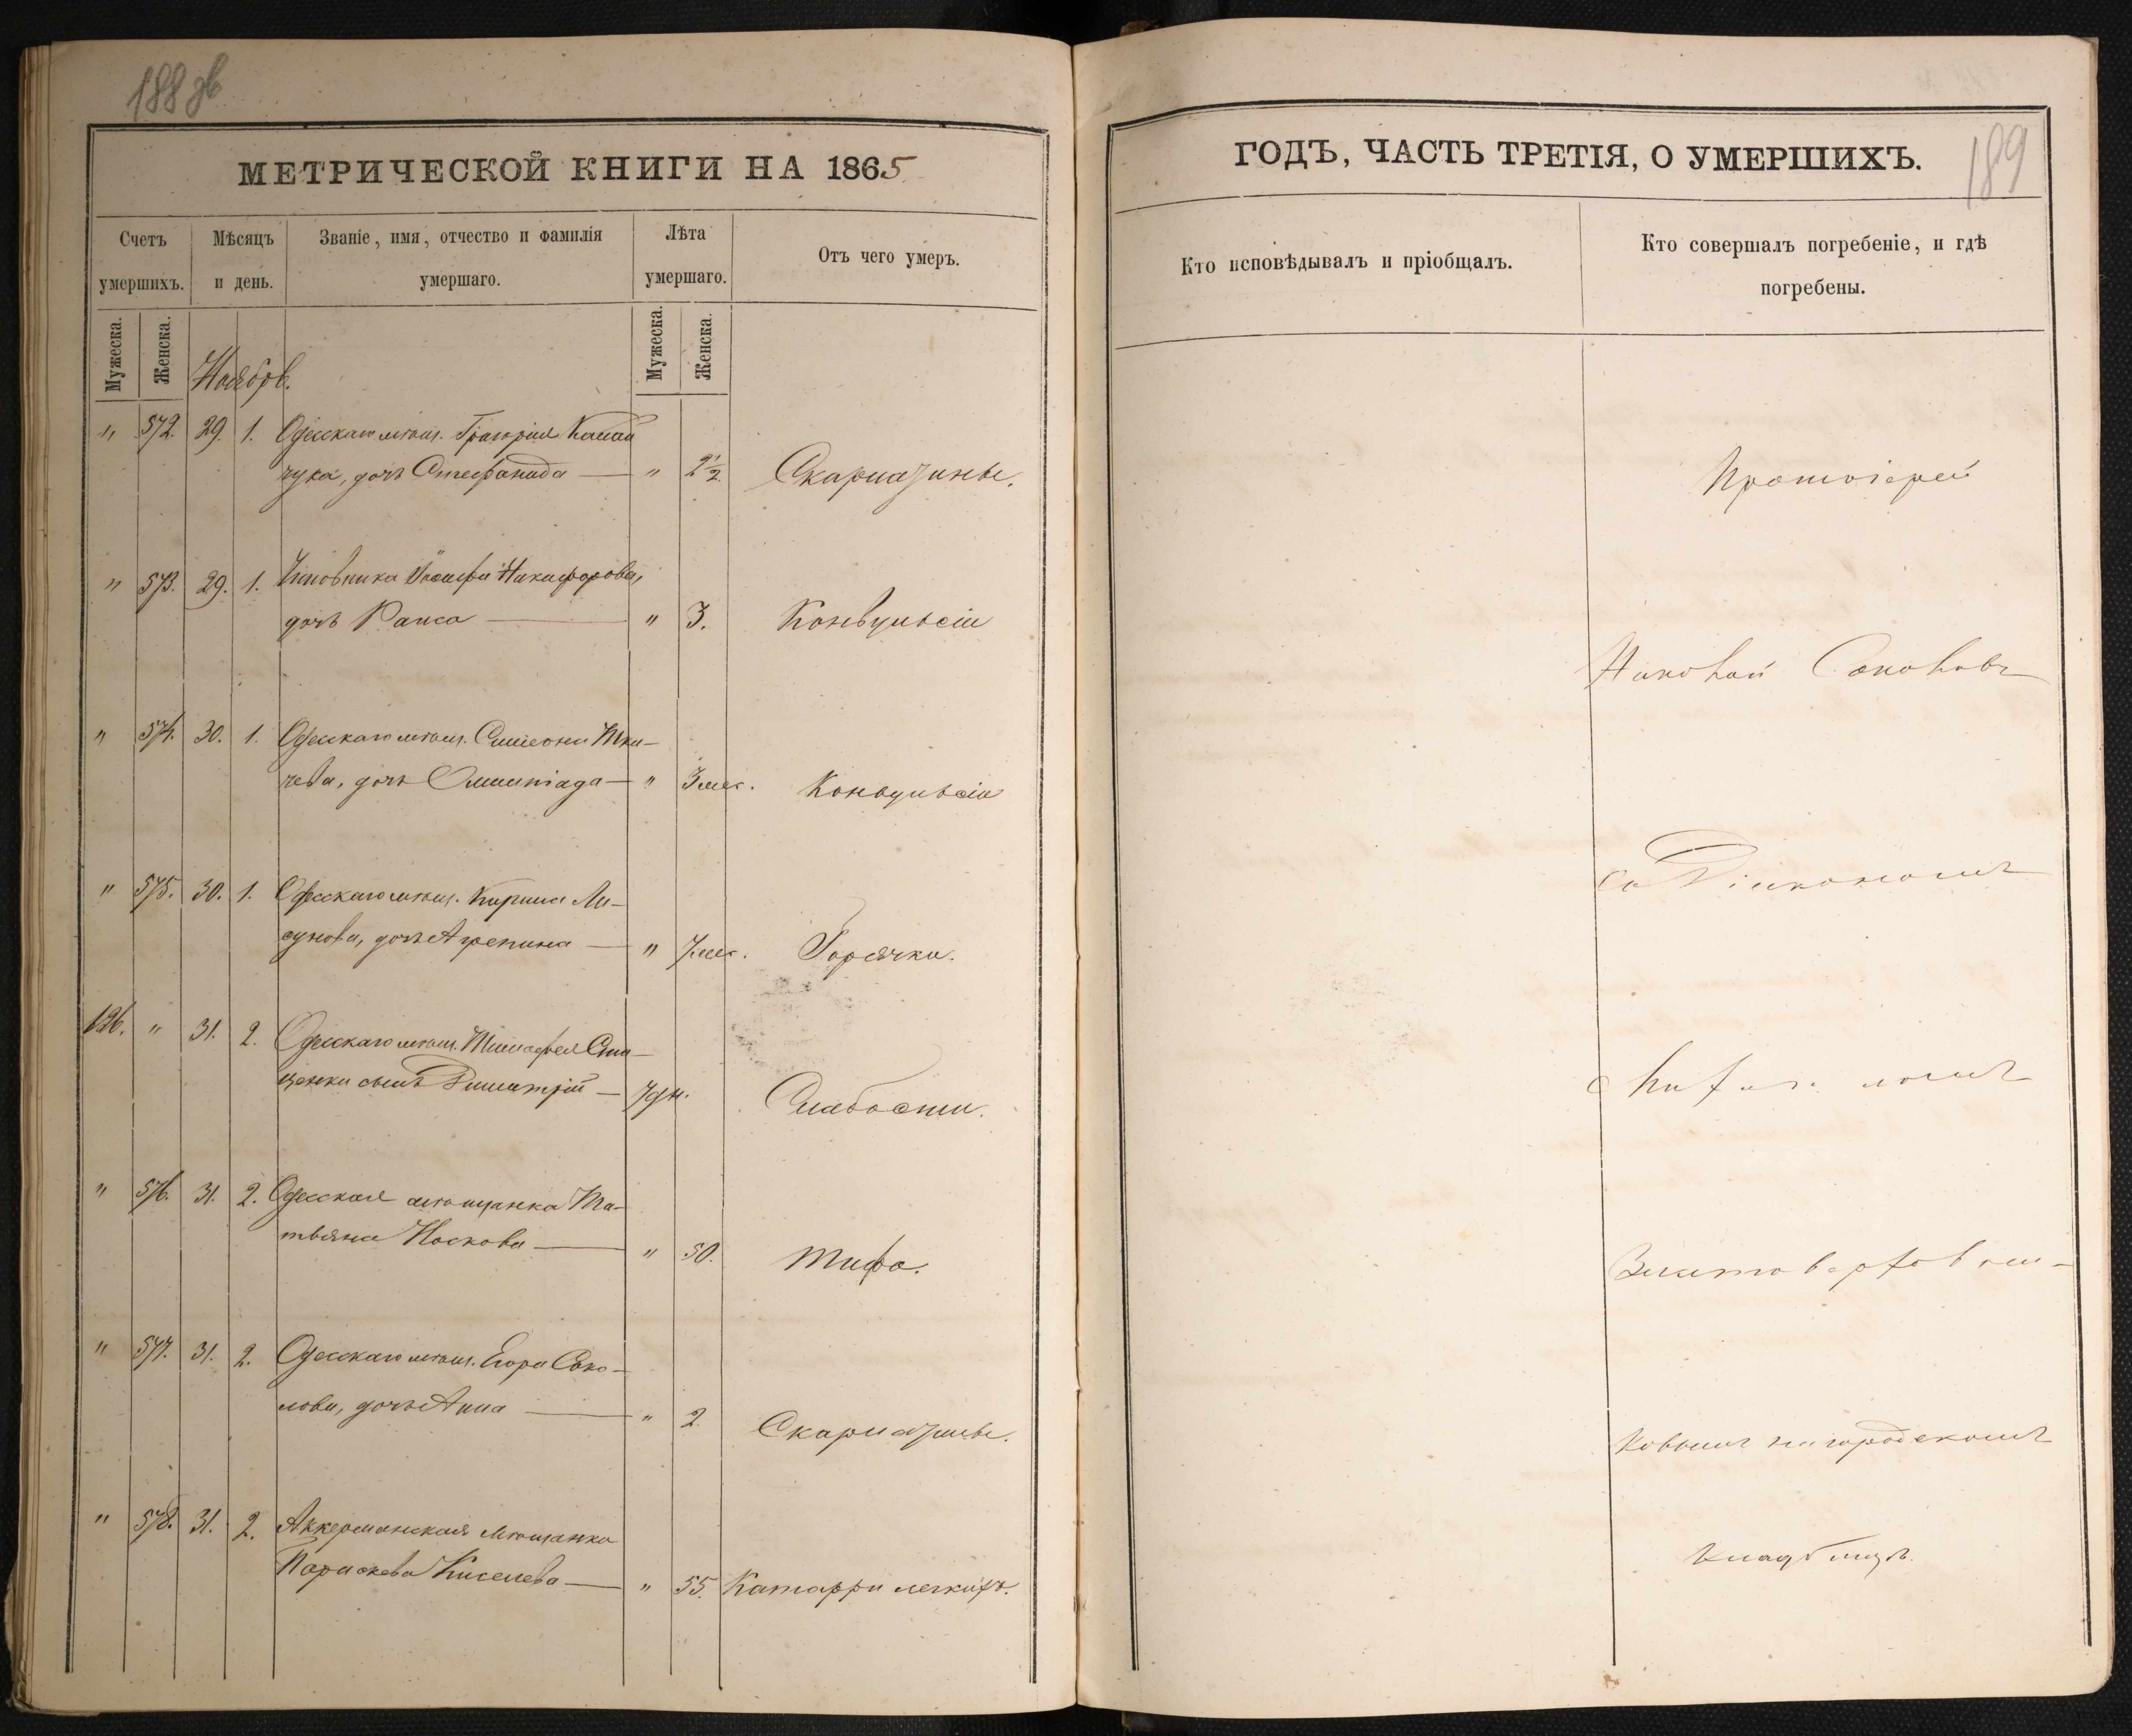 188 зв
МЕТРИЧЕСКОЙ КНИГИ НА 1865
Счетъ умершихъ.
Мѣсяцъ и день.
Званіе, имя, отчество и фамилія умершаго.
Лѣта умершаго.
Отъ чего умеръ.
Мужеска. Женска.
Мужеска. Женска.
Ноябрь.
" 572. 29. 1. Одесскаго мѣщ. Григорія
чука, дочь Стефанида — " 2½ Скарлатины.
" 573. 29. 1. Чиновника Іосифа Никифорова,
дочь Раиса — " 3. Конвульсіи
" 574. 30. 1. Одесскаго мѣщ. Симеона Тка-
чева, дочь Олимпіада — " 3 мес. Конвульсіи
" 575. 30. 1. Одесскаго мѣщ. Кирила Ли-
сунова, дочь Агрепина — " 7 мес. Горячки.
126. " 31. 2. Одесскаго мѣщ. Тимофея Ста-
ценки сынъ Димитрій — 7 дн. Слабости.
" 576. 31. 2. Одесская мѣщанка Та-
тьяна Носкова — " 50. Тифа.
" 577. 31. 2. Одесскаго мѣщ. Егора Соко-
лова, дочь Анна — " 2. Скарлатины.
" 578. 31. 2. Аккерманская мѣщанка
Параскева Киселева — " 55. Катарри легкихъ.
ГОДЪ, ЧАСТЬ ТРЕТІЯ, О УМЕРШИХЪ.
189
Кто исповѣдывалъ и пріобщалъ.
Кто совершалъ погребеніе, и гдѣ погребены.
Протоіерей
Николай Соколовъ
съ Діакономъ
Златоверховни-
ковымъ на городскомъ
кладбищѣ.